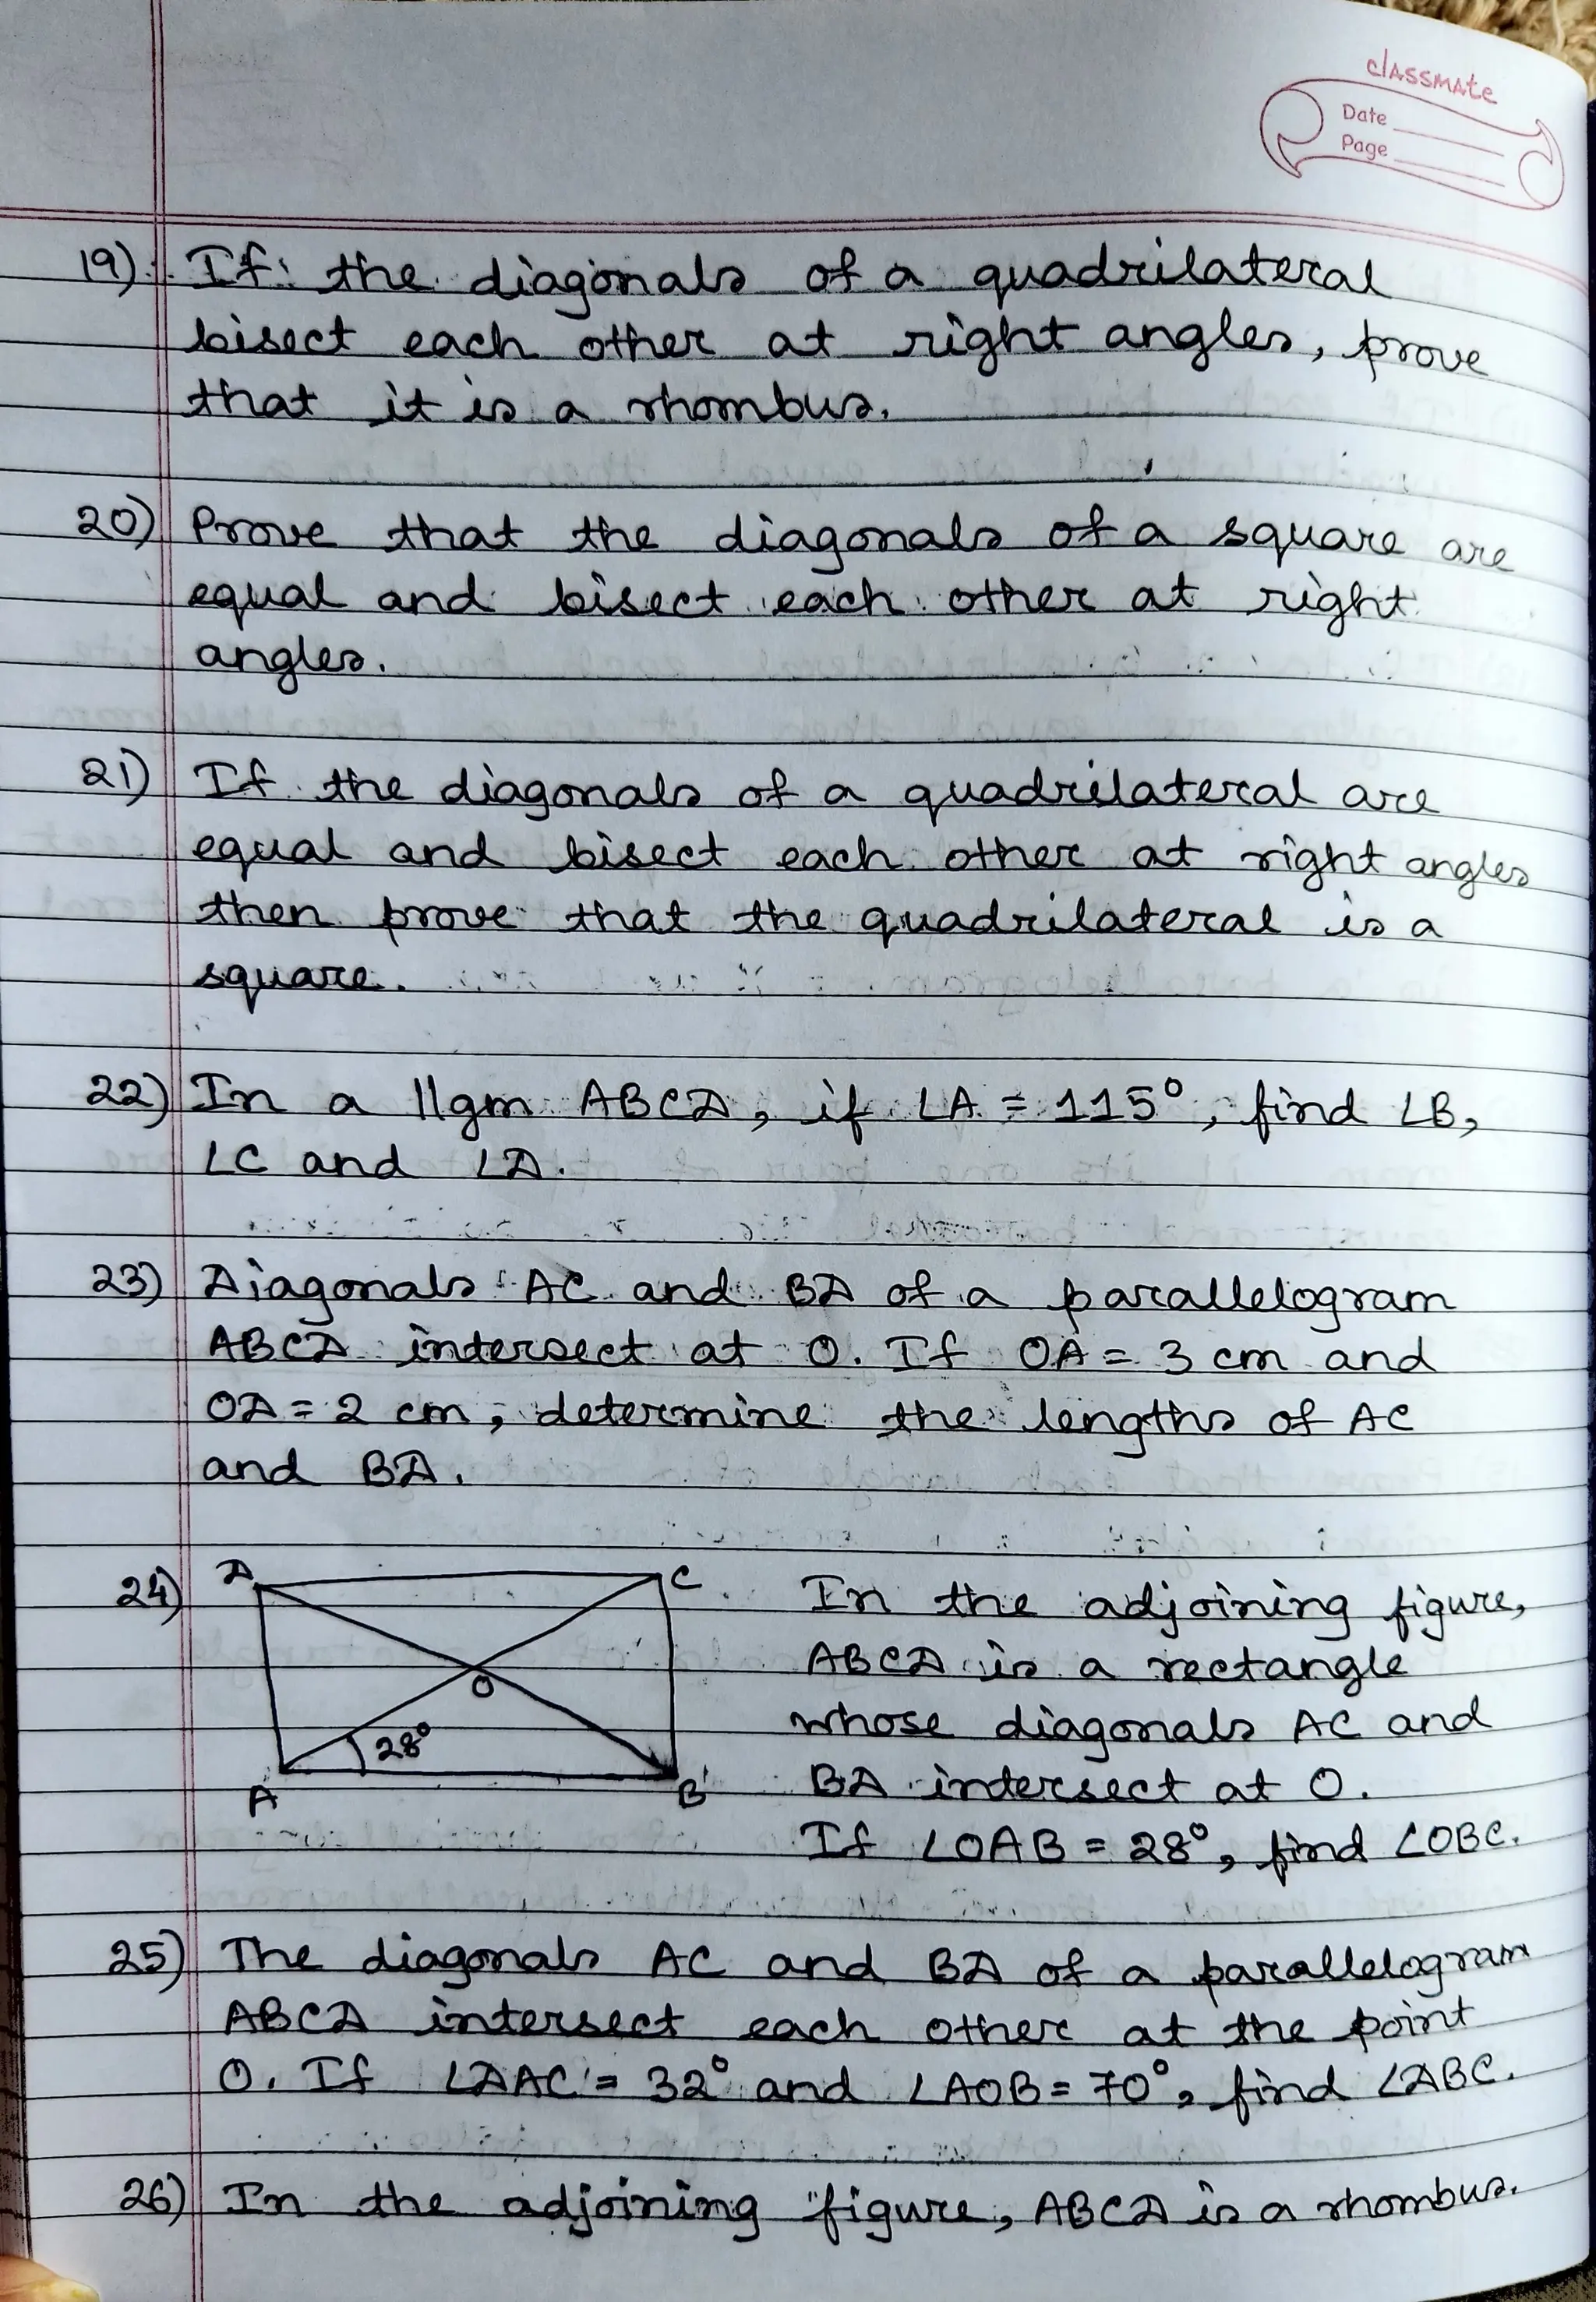 classmate
Date
Page
19) If the diagonals of a quadrilateral
bisect each other at right angles, prove
that it is a rhombus.
20) Prove that the diagonals of a square are
equal and bisect each other at right
angles.
21) If the diagonals of a quadrilateral are
equal and bisect each other at right angles
then prove that the quadrilateral is a
square.
22) In a ||gm ABCD, if ∠A = 115°, find ∠B,
∠C and ∠D.
23) Diagonals AC and BD of a parallelogram
ABCD intersect at O. If OA = 3 cm and
OD = 2 cm, determine the lengths of AC
and BD.
24) D C In the adjoining figure,
ABCD is a rectangle
O
whose diagonals AC and
28°
A B BD intersect at O.
If ∠OAB = 28°, find ∠OBC.
25) The diagonals AC and BD of a parallelogram
ABCD intersect each other at the point
O. If ∠DAC = 32° and ∠AOB = 70°, find ∠DBC.
26) In the adjoining figure, ABCD is a rhombus.